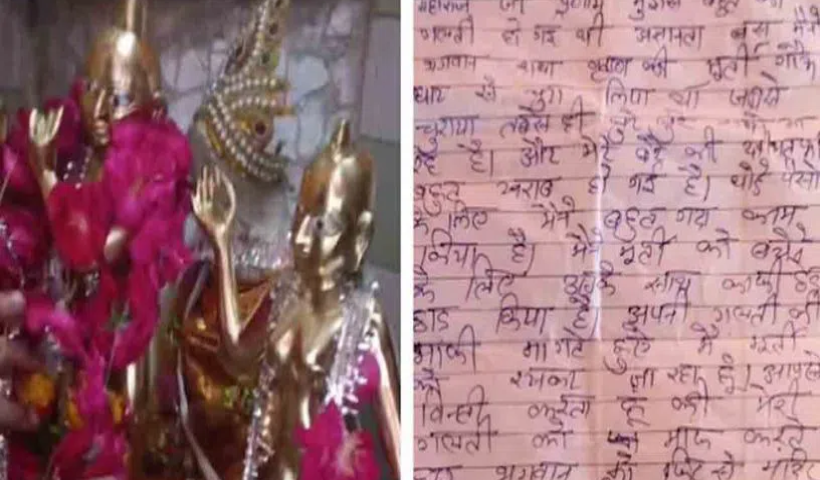 महाराज जी प्रणाम मुझसे बहुत बड़ी
गलती हो गई थी अज्ञानता बस मैंने
भगवान राधा कृष्ण की मूर्ती गौऊ
घाट से चुरा लिया था जबसे
चुराया तबसे ही बुरे
रहे है। और मेरे बेटे की
बहुत खराब हो गई है। थोड़े पैसो
के लिए मैंने बहुत गंदा काम
किया है। मैंने मूर्ती को बेचने
के लिए उसके साथ काफी छेड़
छाड़ किया है। अपनी गलती की
माफी मांगते हुऐ मै मूर्ती
को रखकर जा रहा हूं। आपसे
विन्ती करता हूं की मेरी
गलती को माफ करते
हुए भगवान को फिर से मंदिर